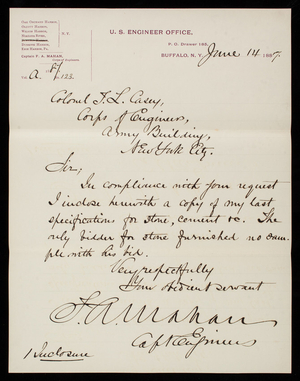 U. S. ENGINEER OFFICE,
P. O. Drawer 145,
BUFFALO, N. Y., June 14 1887.
Captain F. A. MAHAN,
Corps of Engineers.
N. Y.
Vol. A. 123.
Colonel T. L. Casey,
Corps of Engineers,
Army Building,
New York City.
Sir;
In compliance with your request
I inclose herewith a copy of my last
specifications for stone, cement &c. The
only bidder for stone furnished no sam-
ple with his bid.
Very respectfully
Your obedient servant
F. A. Mahan
Capt Engineers
1 Inclosure